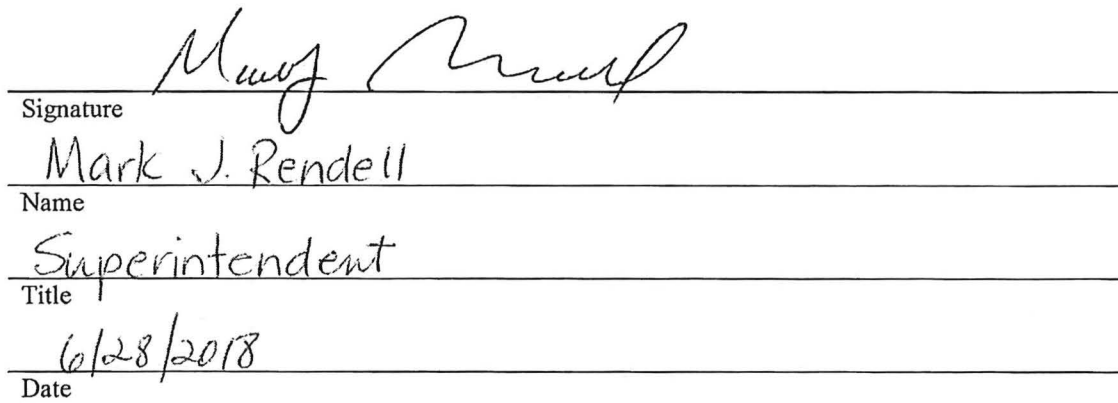 Signature
Mark J. Rendell
Name
Superintendent
Title
6/28/2018
Date